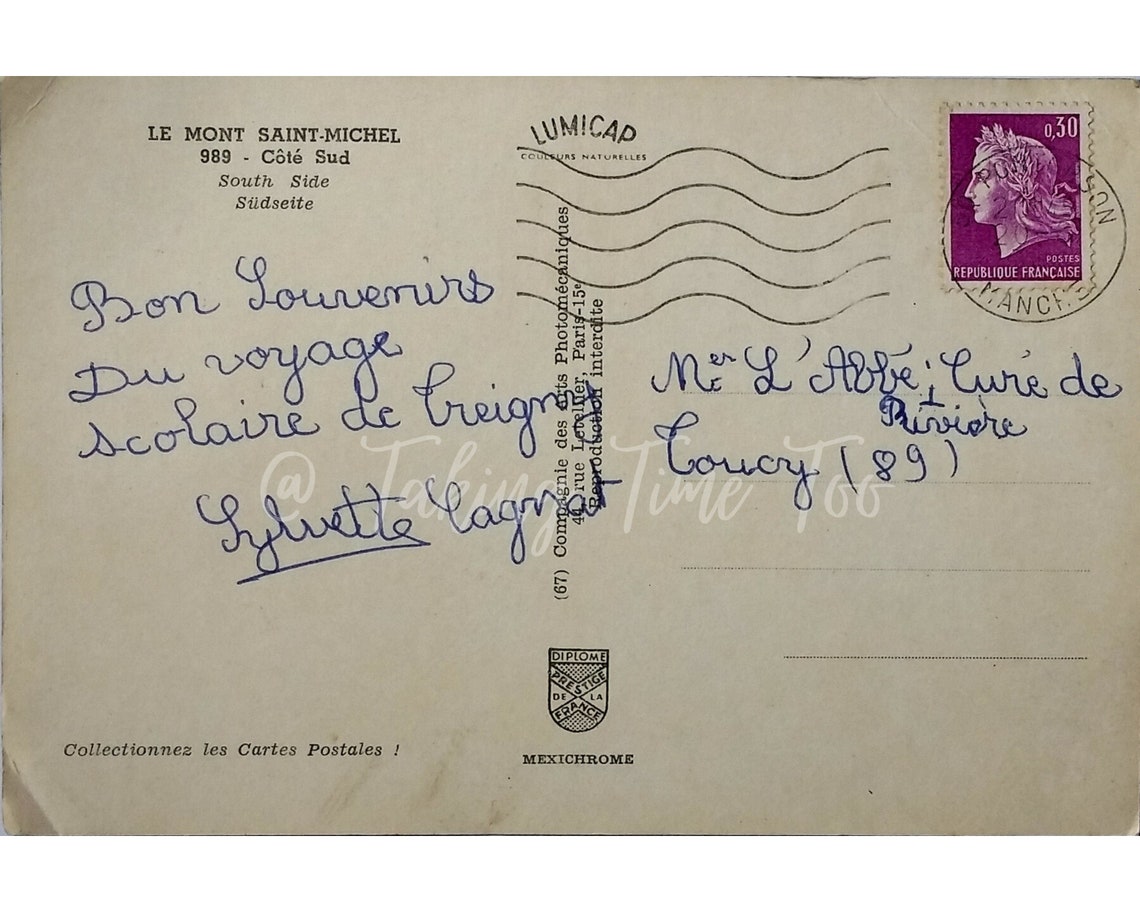 LE MONT SAINT-MICHEL
989 - Côté Sud
South Side
Südseite
Bon Souvenirs
Du voyage
scolaire de Treigny
Sylvette
Collectionnez les Cartes Postales !
LUMICAP
COULEURS NATURELLES
(67) Compagnie des Arts Photomécaniques
rue Letellier, Paris-15e
Reproduction interdite
DIPLOME
PRESTIGE
DE LA
FRANCE
MEXICHROME
0,30
POSTES
REPUBLIQUE FRANÇAISE
MANCHE
L'Abbé Curé de
Rivière
Toucy (89)
@ Taking Time Too